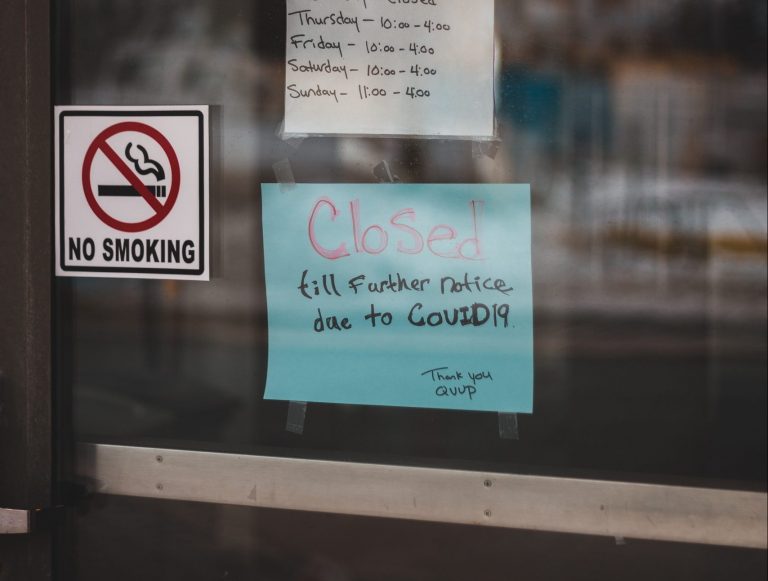 Closed
Thursday - 10:00 - 4:00
Friday - 10:00 - 4:00
Saturday - 10:00 - 4:00
Sunday - 11:00 - 4:00
NO SMOKING
Closed
till Further notice
due to COVID19.
Thank you
QVVP